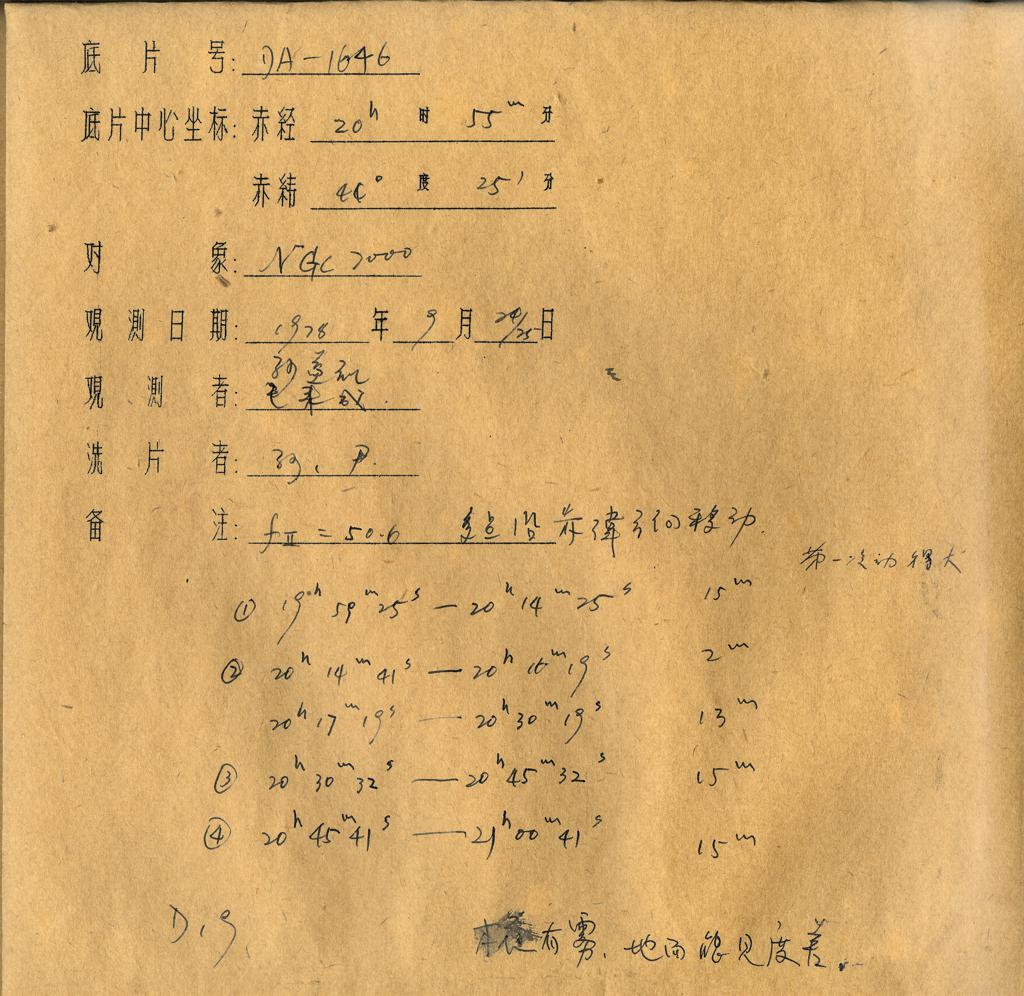 底片号: DA-1646
底片中心坐标: 赤经 20h 时 55m 分
赤緯 44° 度 25' 分
对象: NGC 7000
观測日期: 1978 年 9 月 24/25 日
观測者:
洗片者: 孙、尹.
备注: fII = 50.6 多点沿赤緯方向移动.
第一次动得大
① 19h 59m 25s — 20h 14m 25s 15m
② 20h 14m 41s — 20h 16m 19s 2m
20h 17m 19s — 20h 30m 19s 13m
③ 20h 30m 32s — 20h 45m 32s 15m
④ 20h 45m 41s — 21h 00m 41s 15m
D19.
有雾、地面能见度差.